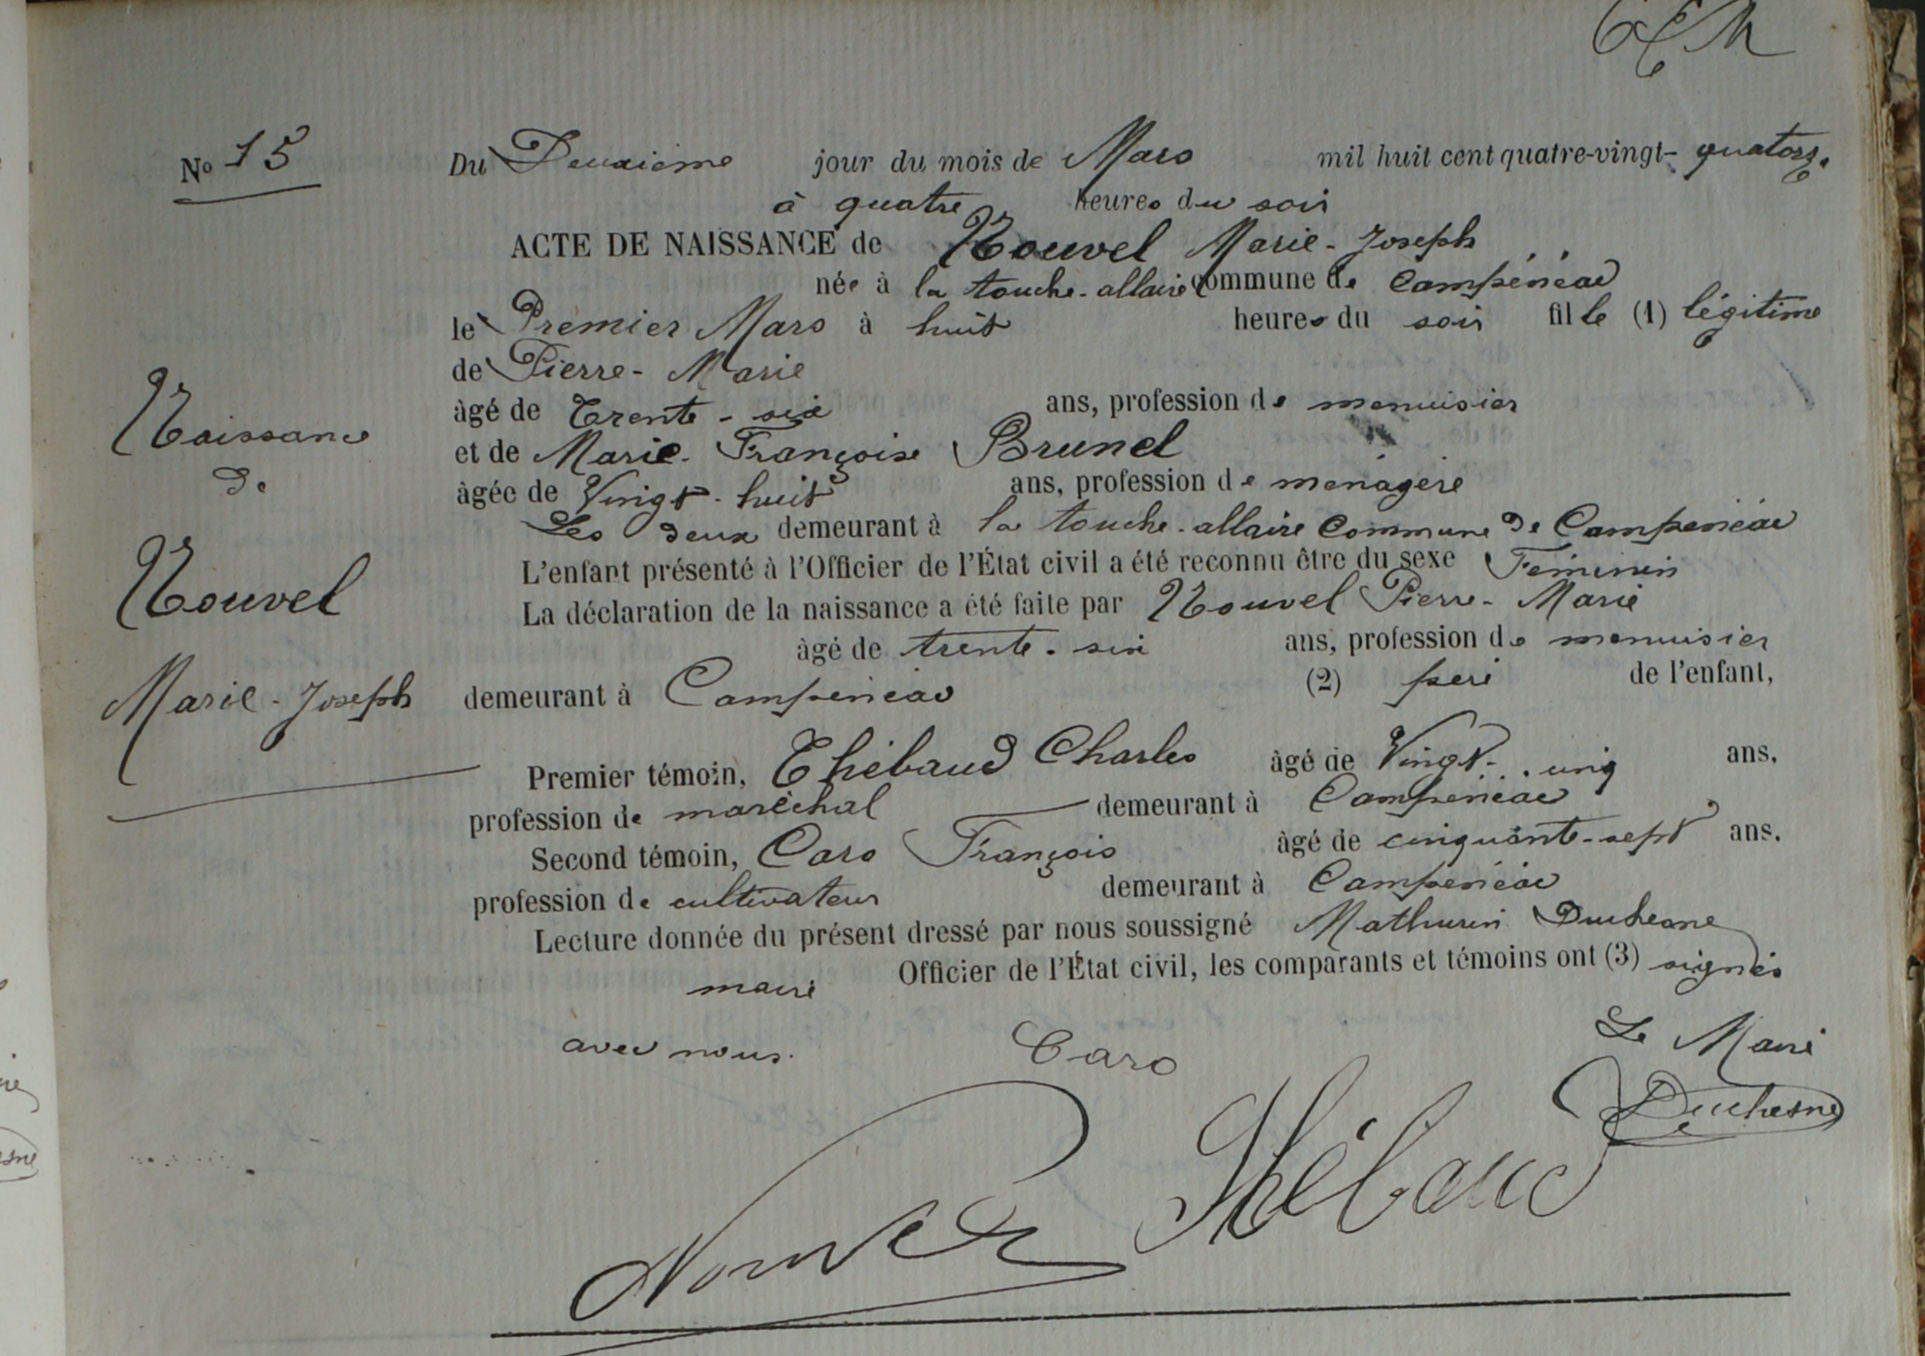 N° 15
Du Deuxième jour du mois de Mars mil huit cent quatre-vingt-quatorze
à quatre heures du soir
ACTE DE NAISSANCE de Nouvel Marie-Joseph
née à la touche-allaire commune de Campénéac
le Premier Mars à huit heures du soir fille (1) légitime
de Pierre-Marie
âgé de Trente-six ans, profession de menuisier
et de Marie-Françoise Brunel
âgée de Vingt-huit ans, profession de ménagère
Les deux demeurant à la touche-allaire commune de Campénéac
L'enfant présenté à l'Officier de l'État civil a été reconnu être du sexe Féminin
La déclaration de la naissance a été faite par Nouvel Pierre-Marie
âgé de trente-six ans, profession de menuisier
demeurant à Campénéac (2) père de l'enfant,
Premier témoin, Thébaud Charles âgé de Vingt-cinq ans,
profession de maréchal demeurant à Campénéac
Second témoin, Caro François âgé de cinquante-sept ans,
profession de cultivateur demeurant à Campénéac
Lecture donnée du présent dressé par nous soussigné Mathurin Duchesne
maire Officier de l'État civil, les comparants et témoins ont (3) signés
avec nous.
Caro
Le Maire
Duchesne
Nouvel
Thébaud
Naissance
de
Nouvel
Marie-Joseph